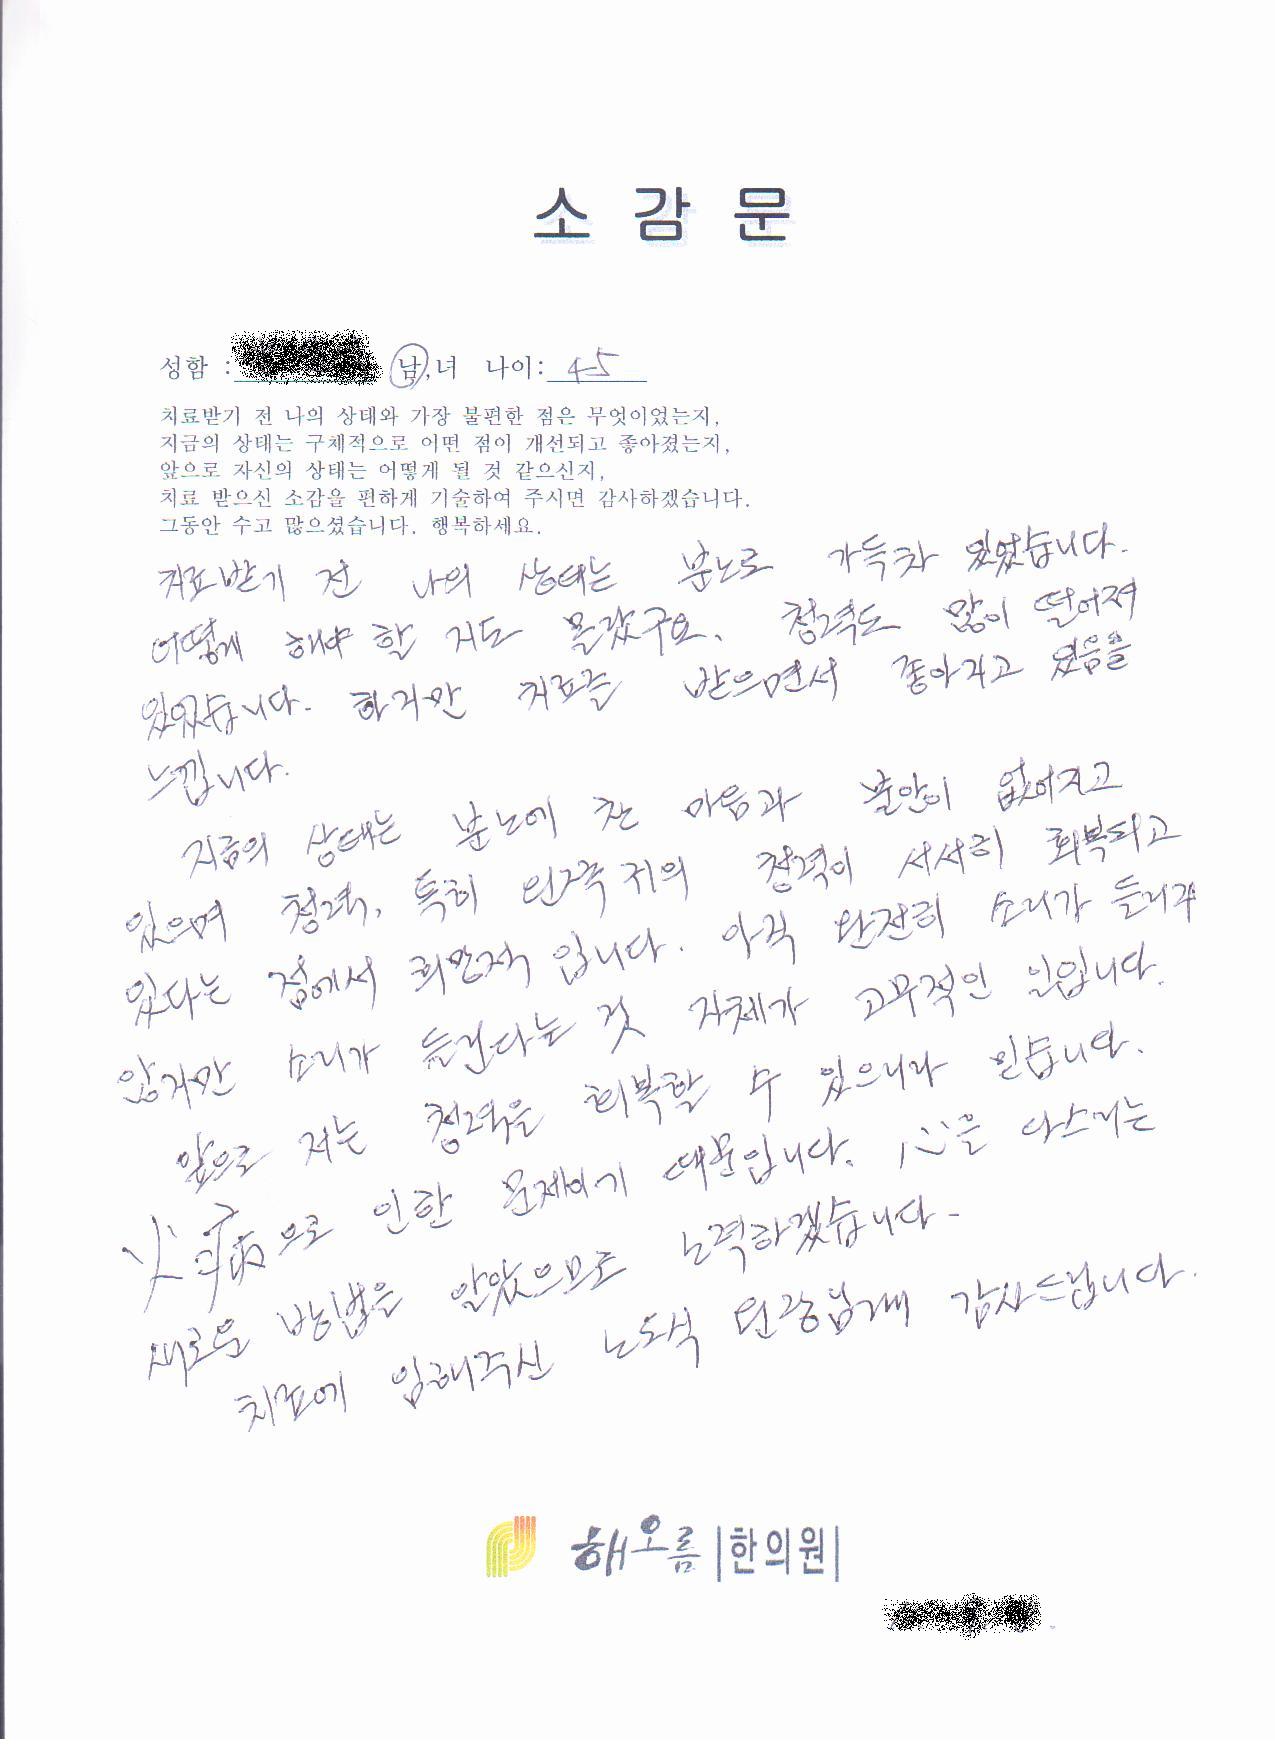 소 감 문
성함 : 남,녀 나이: 45
치료받기 전 나의 상태와 가장 불편한 점은 무엇이었는지,
지금의 상태는 구체적으로 어떤 점이 개선되고 좋아졌는지,
앞으로 자신의 상태는 어떻게 될 것 같으신지,
치료 받으신 소감을 편하게 기술하여 주시면 감사하겠습니다.
그동안 수고 많으셨습니다. 행복하세요.
치료받기 전 나의 상태는 분노로 가득차 있었습니다.
어떻게 해야 할 지도 몰랐구요. 청력도 많이 떨어져
있었습니다. 하지만 치료를 받으면서 좋아지고 있음을
느낍니다.
지금의 상태는 분노에 찬 마음과 불안이 없어지고
있으며 청력, 특히 왼쪽 귀의 청력이 서서히 회복되고
있다는 점에서 희망적 입니다. 아직 완전히 소리가 들리지
않지만 소리가 들린다는 것 자체가 고무적인 일입니다.
앞으로 저는 청력을 회복할 수 있으리라 믿습니다.
火病으로 인한 문제이기 때문입니다. 心을 다스리는
새로운 방법을 알았으므로 노력하겠습니다.
치료에 임해주신 노도식 원장님께 감사드립니다.
해오름|한의원|